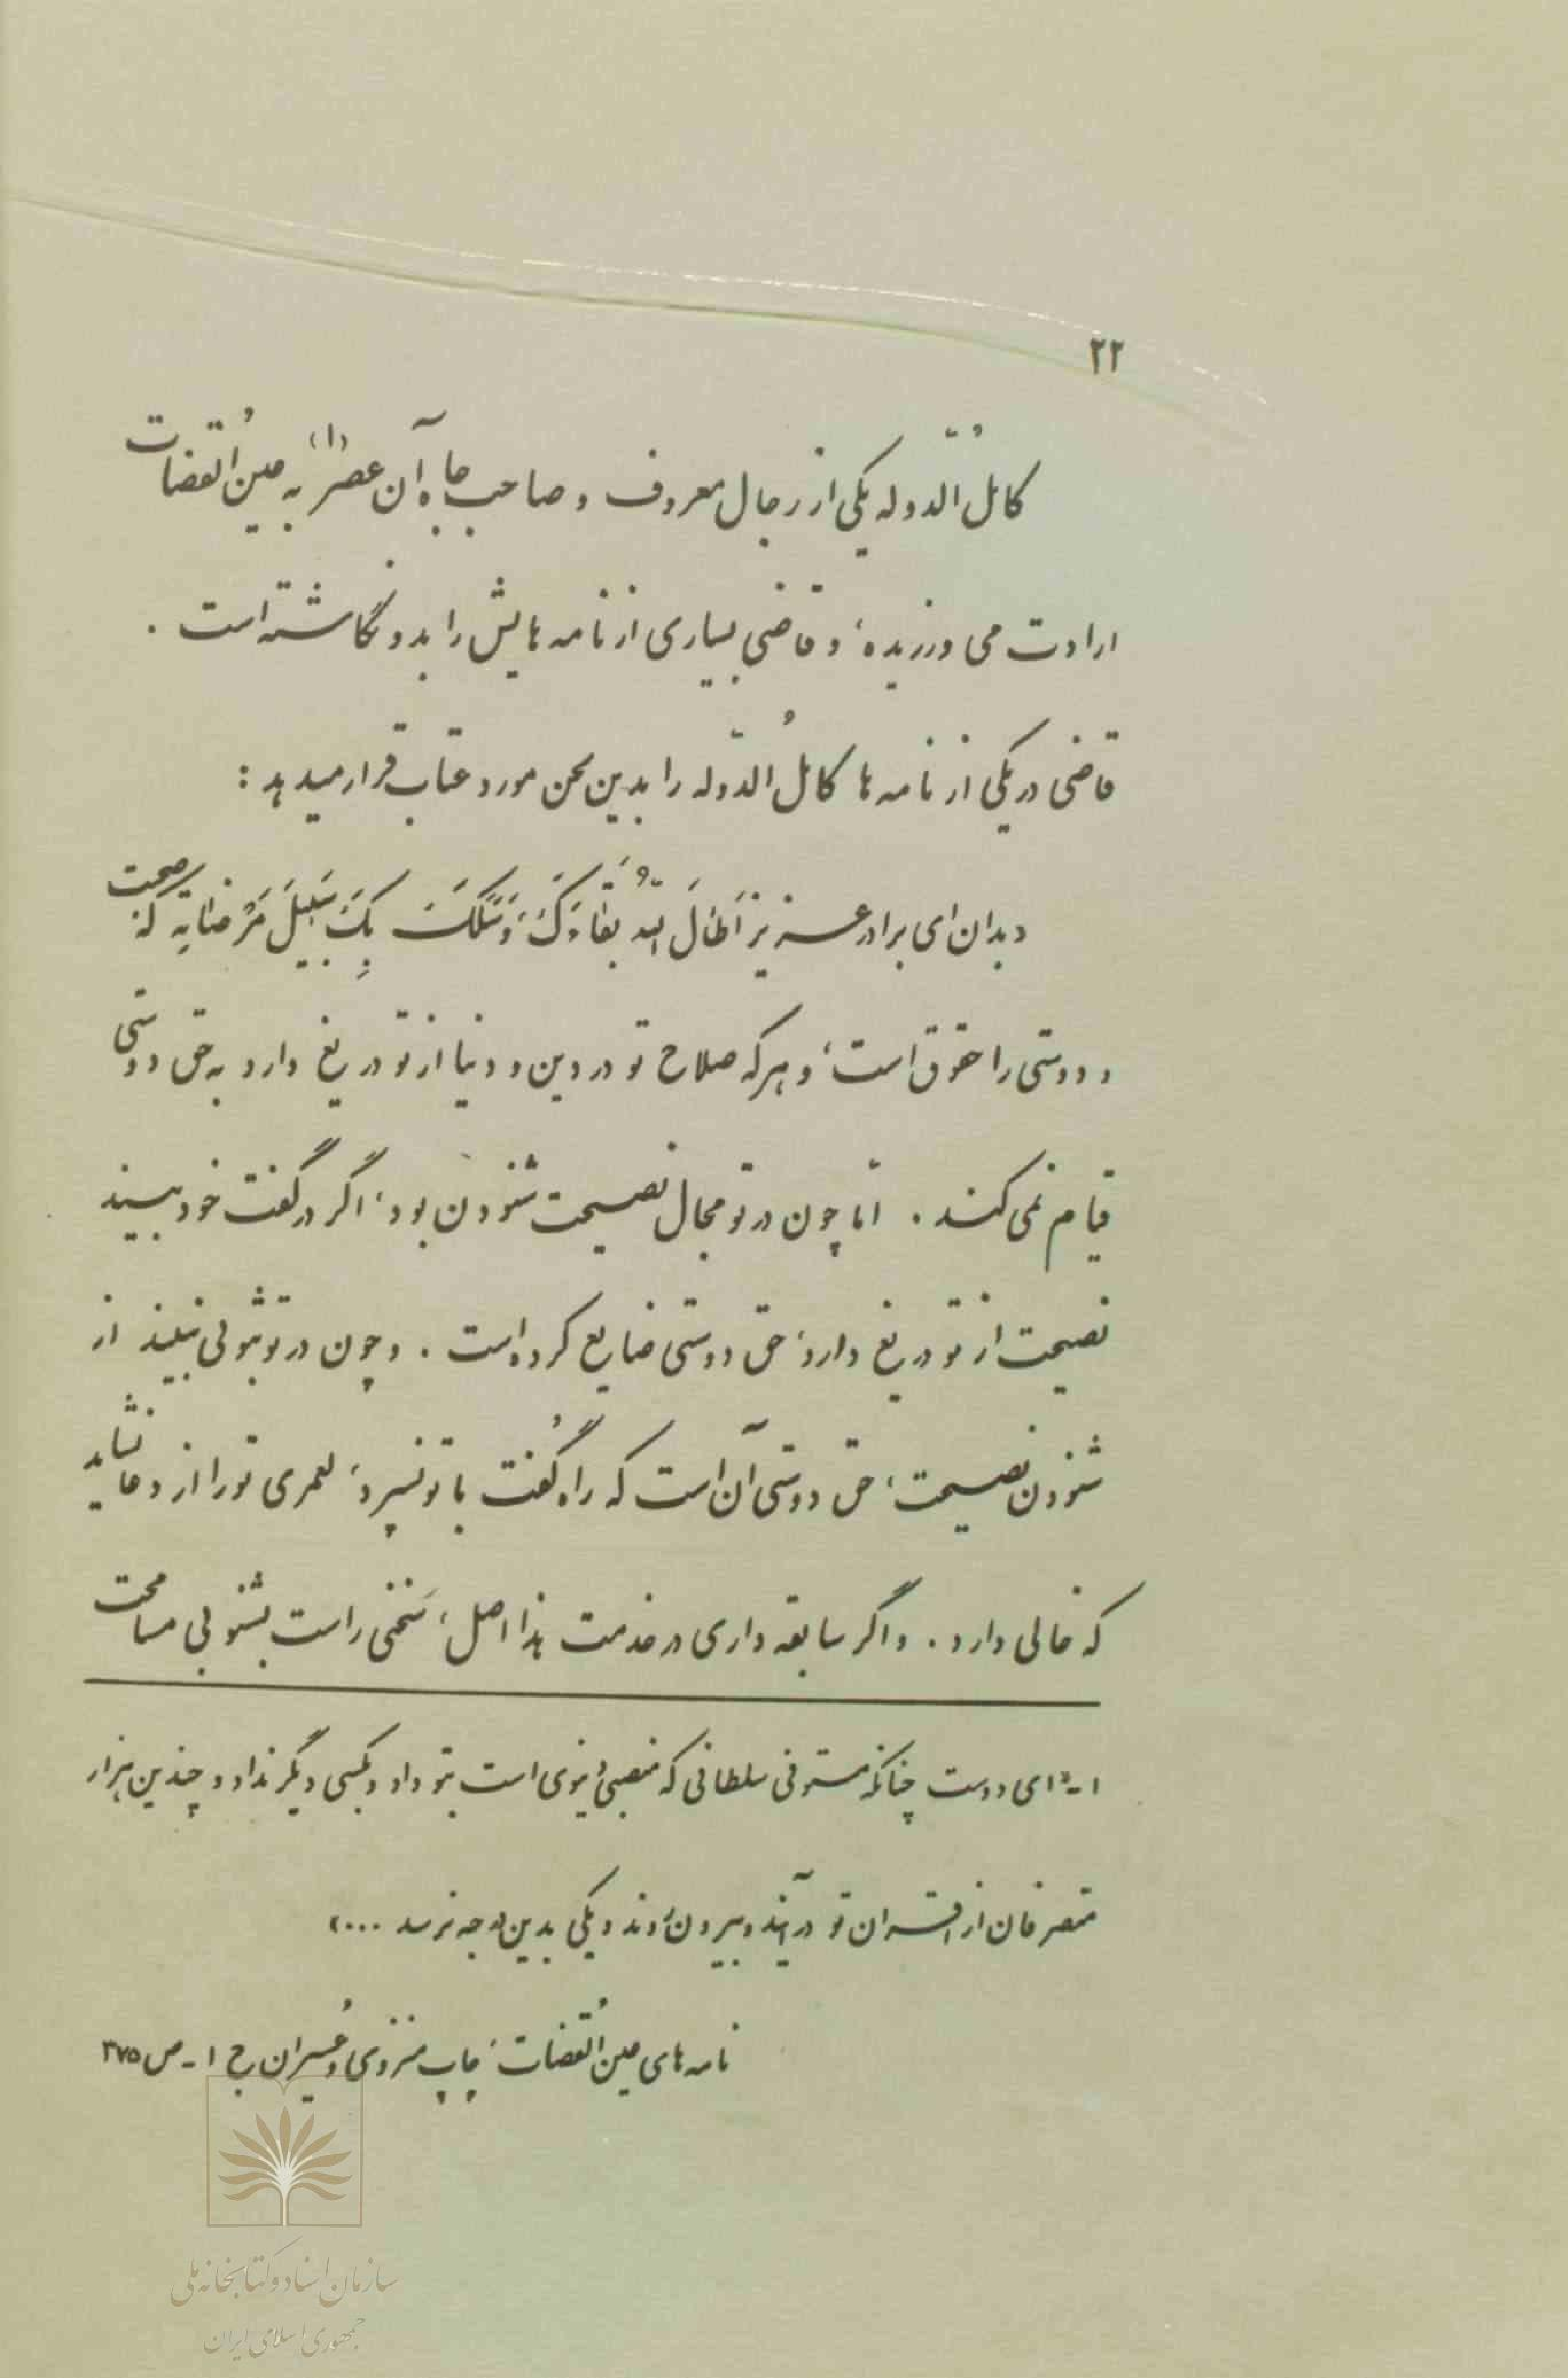 ۲۲
کاملُ الدّوله یکی از رجال معروف و صاحب جاه آن عصر (۱) به عین‌القُضات
ارادت می ورزیده، و قاضی بسیاری از نامه هایش را بدو نگاشته است .
قاضی در یکی از نامه ها کاملُ الدّوله را بدین لحن مورد عتاب قرار میدهد :
«بدان ای برادر عزیز اَطالَ اللّهُ بَقاءَکَ، وَ سَلَکَ بِکَ سَبیلَ مَرْضاتِه که صحبت
و دوستی را حقوق است، و هر که صلاح تو در دین و دنیا از تو دریغ دارد به حق دوستی
قیام نمی کند . امّا چون در تو مجال نصیحت شنودن بود، اگر در گفت خود ببیند
نصیحت از تو دریغ دارد، حق دوستی ضایع کرده است . و چون در تو قبولی نبیند از
شنودن نصیحت، حق دوستی آن است که راه گُفت با تو نسپرد، لعمری تو را از دعا نشاید
که خالی دارد . و اگر سابقه داری در خدمت هذا اصل، سَخنی راست بشنو بی مسامحت
۱ - «ای دوست چنانکه مستوفی سلطانی که منصبی دنیوی است بتو داد و بکسی دیگر نداد و چندین هزار
متصرفان از اقران تو در آیند و بیرون رَوند و یکی بدین درجه نرسد ...»
نامه های عین‌القُضات، چاپ منزوی و عُسیران ج ۱ - ص ۳۷۵
سازمان اسناد و کتابخانه ملی
جمهوری اسلامی ایران